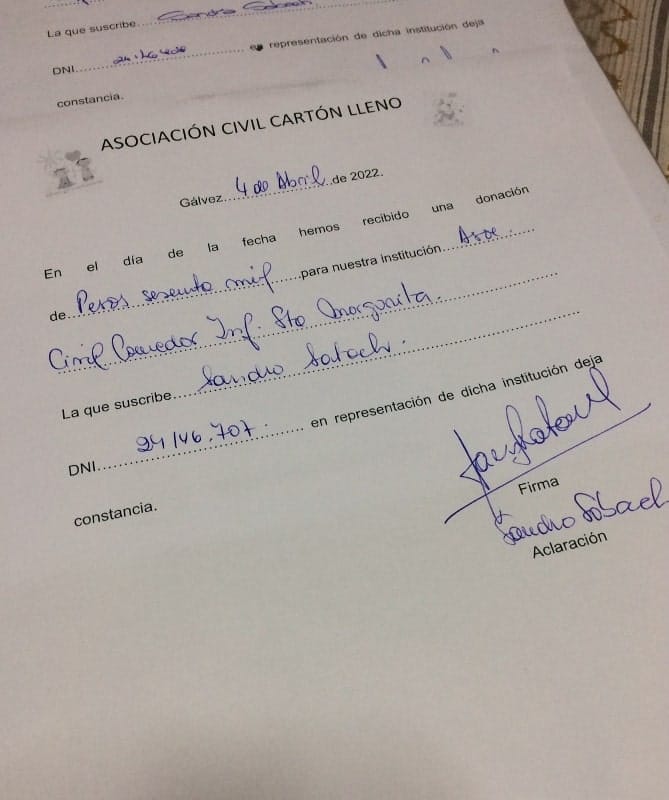 La que suscribe
DNI 24.146.707 en representación de dicha institución deja
constancia.
ASOCIACIÓN CIVIL CARTÓN LLENO
Gálvez 4 de Abril de 2022.
En el día de la fecha hemos recibido una donación
de Pesos sesenta mil para nuestra institución Asoc.
Civil Comedor Inf. Sta Margarita.
La que suscribe Sandra
DNI 24146.707 en representación de dicha institución deja
constancia.
Firma
Sandra
Aclaración